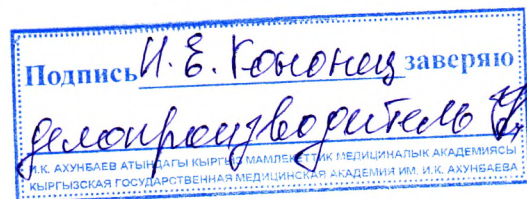 Подпись И. Е. Кононец заверяю
делопроизводитель
И.К. АХУНБАЕВ АТЫНДАГЫ КЫРГЫЗ МАМЛЕКЕТТИК МЕДИЦИНАЛЫК АКАДЕМИЯСЫ
КЫРГЫЗСКАЯ ГОСУДАРСТВЕННАЯ МЕДИЦИНСКАЯ АКАДЕМИЯ ИМ. И.К. АХУНБАЕВА